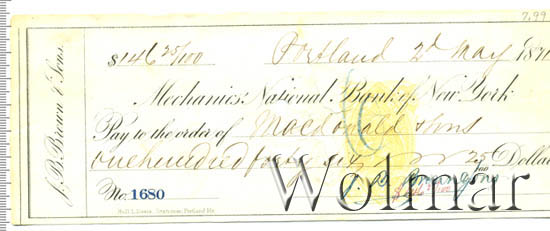 2,99
J. B. Brown & Sons.
$146 25/100 Portland 2d May 187
Mechanics' National Bank of New York
Pay to the order of Macdonald & Sons
One hundred forty six 25/100 Dollars
No. 1680 J. B. Brown & Sons
Wolmar